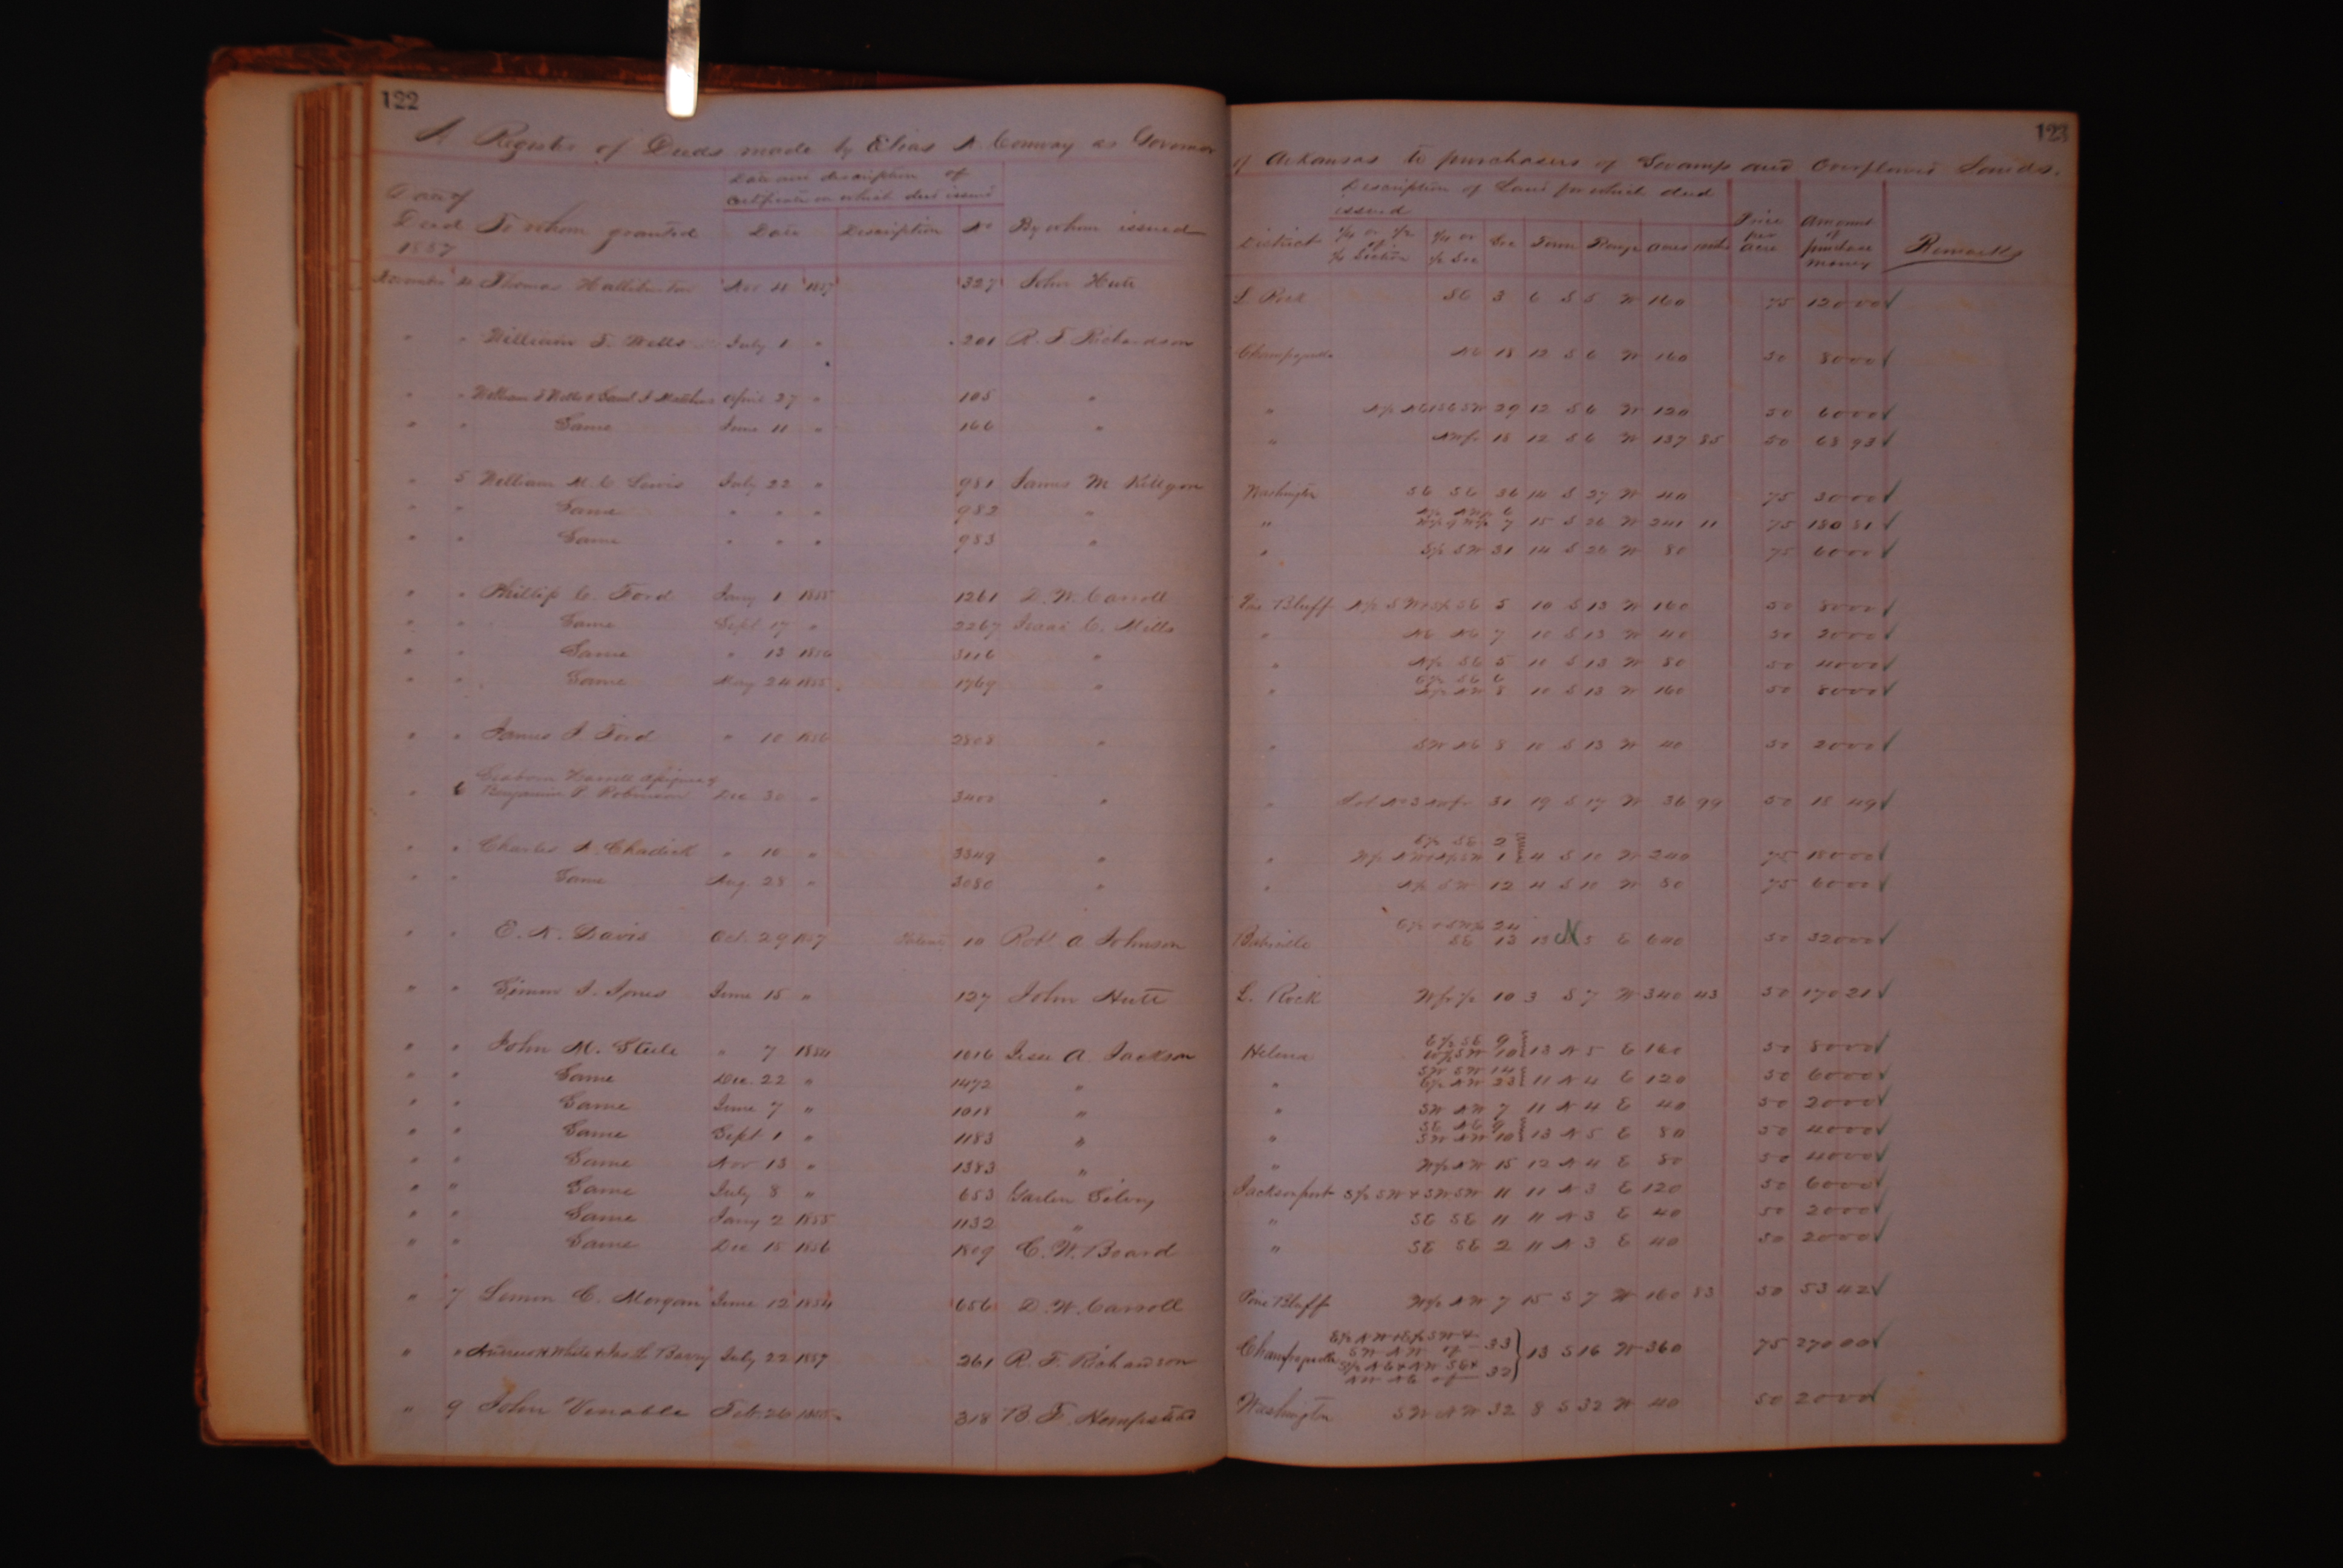 122
123
A Register of Deeds made by Elias N. Conway as Governor of Arkansas to purchasers of Swamp and Overflowed Lands.
Date of Deed 1857
To whom granted
Date and description of certificate on which deed issued
Date Description No
By whom issued
Description of Land for which deed issued
District
1/4 or 1/2 of 1/4 Section
1/4 or 1/2 Sec
Sec Town Range acres
Price per acre
Amount of purchase money
Remarks
December Thomas Halliburton Nov 11 1857 327 John Hutt L. Rock SE 3 6 S 5 W 160 75 120 00
" " William T. Wells July 1 " 201 R. F. Richardson Champagnolle NE 18 12 S 6 W 160 50 80 00
" " William T Wells & April 27 " 105 " " 29 12 S 6 W 120 50 60 00
" " Same June 11 " 166 " " NW fr 18 12 S 6 W 137 85 50 68 93
" 5 William M. C. Lewis July 22 " 981 James M Killgore Washington SE SE 36 14 S 27 W 40 75 30 00
" " Same " " " 982 " " 7 15 S 26 W 241 11 75 180 81
" " Same " " " 983 " " S/2 SW 31 14 S 26 W 80 75 60 00
" " Phillip C. Ford Jany 1 1855 1261 D. W. Carroll Pine Bluff 5 10 S 13 W 160 50 80 00
" " Same Sept 17 " 2267 Isaac C. Mills " NE NE 7 10 S 13 W 40 50 20 00
" " Same " 13 1856 3116 " " N/2 SE 5 10 S 13 W 80 50 40 00
" " Same May 24 1855 1769 " " E/2 SE 6
NW 8 10 S 13 W 160 50 80 00
" " James J. Ford " 10 1856 2808 " " SW NE 8 10 S 13 W 40 50 20 00
" 6 Harrell assignee of
Benjamin P Robinson Dec 30 " 3400 " " NW fr 31 19 S 17 W 36 99 50 18 49
" " Charles N. Chadick " 10 " 3349 " " E/2 SE 2
1 4 S 10 W 240 75 180 00
" " Same Aug. 28 " 3080 " " N/2 SW 12 4 S 10 W 80 75 60 00
" " E. N. Davis Oct. 29 1857 10 Robt A Johnson Batesville 24
SE 13 13 N 5 E 640 50 320 00
" " Simon J. Jones June 15 " 127 John Hutt L. Rock W fr 1/2 10 3 S 7 W 340 43 50 170 21
" " John M. Steele " 7 1854 1016 Jesse A. Jackson Helena E/2 SE 9
SW 10 13 N 5 E 160 50 80 00
" " Same Dec. 22 " 1472 " " SW SW 14
E/2 NW 23 11 N 4 E 120 50 60 00
" " Same June 7 " 1018 " " SW NW 7 11 N 4 E 40 50 20 00
" " Same Sept 1 " 1183 " " SE NE 9
SW NW 10 13 N 5 E 80 50 40 00
" " Same Nov 13 " 1383 " " W/2 NW 15 12 N 4 E 80 50 40 00
" " Same July 8 " 653 Jacksonport S/2 SW & SW SW 11 11 N 3 E 120 50 60 00
" " Same Jany 2 1855 1132 " " SE SE 11 11 N 3 E 40 50 20 00
" " Same Dec 15 1856 1809 C. W. Board " SE SE 2 11 N 3 E 40 50 20 00
" 7 C. Morgan June 12 1854 656 D. W. Carroll Pine Bluff W/2 NW 7 15 S 7 W 160 83 50 53 42
" " White & Berry July 22 1857 261 R. F. Richardson Champagnolle E/2 NW & E/2 SW &
SW NW of 33
S/2 NE & NW SE &
NW NE of 32 13 S 16 W 360 75 270 00
" 9 John Venable Feb. 26 318 B. F. Hempstead Washington SW NW 32 8 S 32 W 40 50 20 00